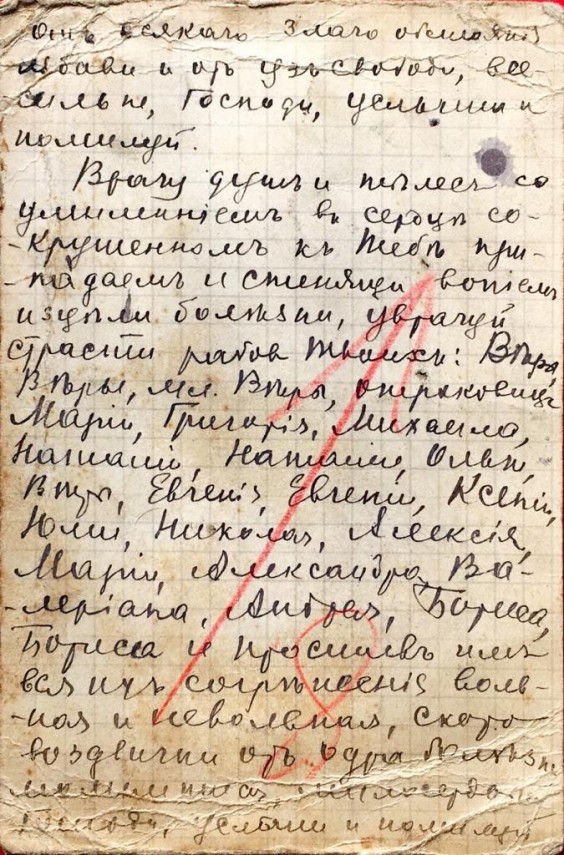 отъ всякаго злаго обстоянія
избави и отъ узъ свободи, все-
сильне, Господи, услыши и
помилуй.
Врачу душъ и тѣлесъ со
умиленіемъ въ сердцѣ со-
-крушенномъ къ Тебѣ при-
-падаемъ и стеняще вопіемъ
исцѣли болѣзни, уврачуй
страсти рабов Твоихъ: Вѣры,
Вѣры, мл. Вѣры, отроковицы
Маріи, Григорія, Михаила,
Наталіи, Наталіи, Ольги,
Вѣры, Евгенія, Евгеніи, Ксеніи,
Юліи, Николая, Алексія,
Маріи, Александра, Ва-
-леріана, Андрея, Бориса,
Бориса и простивъ имъ
вся ихъ согрѣшенія воль-
-ная и невольная, скоро
воздвигни отъ одра болѣзне
милосерде
Господи, услыши и помилуй